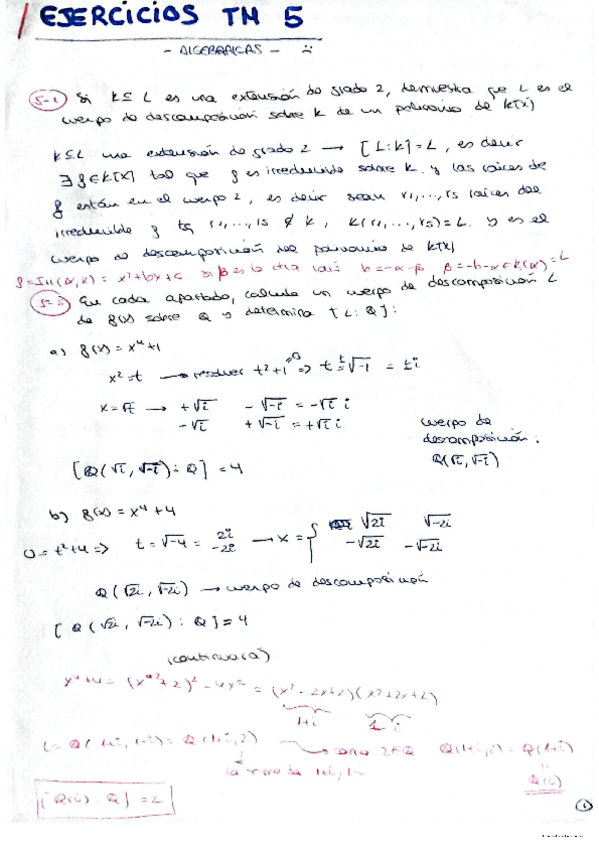 EJERCICIOS TM 5
- ALGEBRAICAS -
5-1 Si K ⊆ L es una extensión de grado 2, demuestra que L es el
cuerpo de descomposición sobre K de un polinomio de K[X]
K ⊆ L una extensión de grado 2 → [L:K]=L, es decir
∃ f ∈ K[X] tal que f es irreducible sobre K y las raíces de
f están en el cuerpo 2, es decir sean r1,...,rs raíces del
irreducible f tq r1,...,rs ∉ K, K(r1,...,rs)=L. y es el
cuerpo de descomposición del polinomio de K[X]
f=Irr(α,K) = x²+bx+c si β es la otra raíz b=-α-β, β=-b-α∈K(α)=L
5-2 En cada apartado, calcula un cuerpo de descomposición L
de f(x) sobre Q y determina [L:Q]:
a) f(x)=x⁴+1
x²=t → resolver t²+1=0 => t=±√-1 = ±i
x=√t → +√i -√-i = -√i i
-√i +√-i = +√i i
cuerpo de
descomposición:
Q(√i, √-i)
[Q(√i, √-i):Q]=4
b) f(x)=x⁴+4
0=t²+4 => t=√-4 = 2i -2i → x = { √2i √-2i
-√2i -√-2i
Q(√2i, √-2i) → cuerpo de descomposición
[Q(√2i, √-2i):Q]=4
(continuará)
x⁴+4 = (x²+2)²-4x² = (x²-2x+2)(x²+2x+2)
1+i
L=Q(1+i, 1-i)=Q(1+i, 2) → como 2∈Q Q(1+i,2)=Q(1+i)
=
Q(i)
[Q(i):Q]=2
1